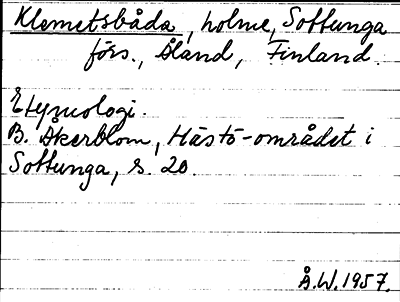 Klemetsbåda, holme, Sottunga
förs., Åland, Finland.
Etymologi.
B. Åkerblom, Hästö-området i
Sottunga, s. 20.
Å.W. 1957.